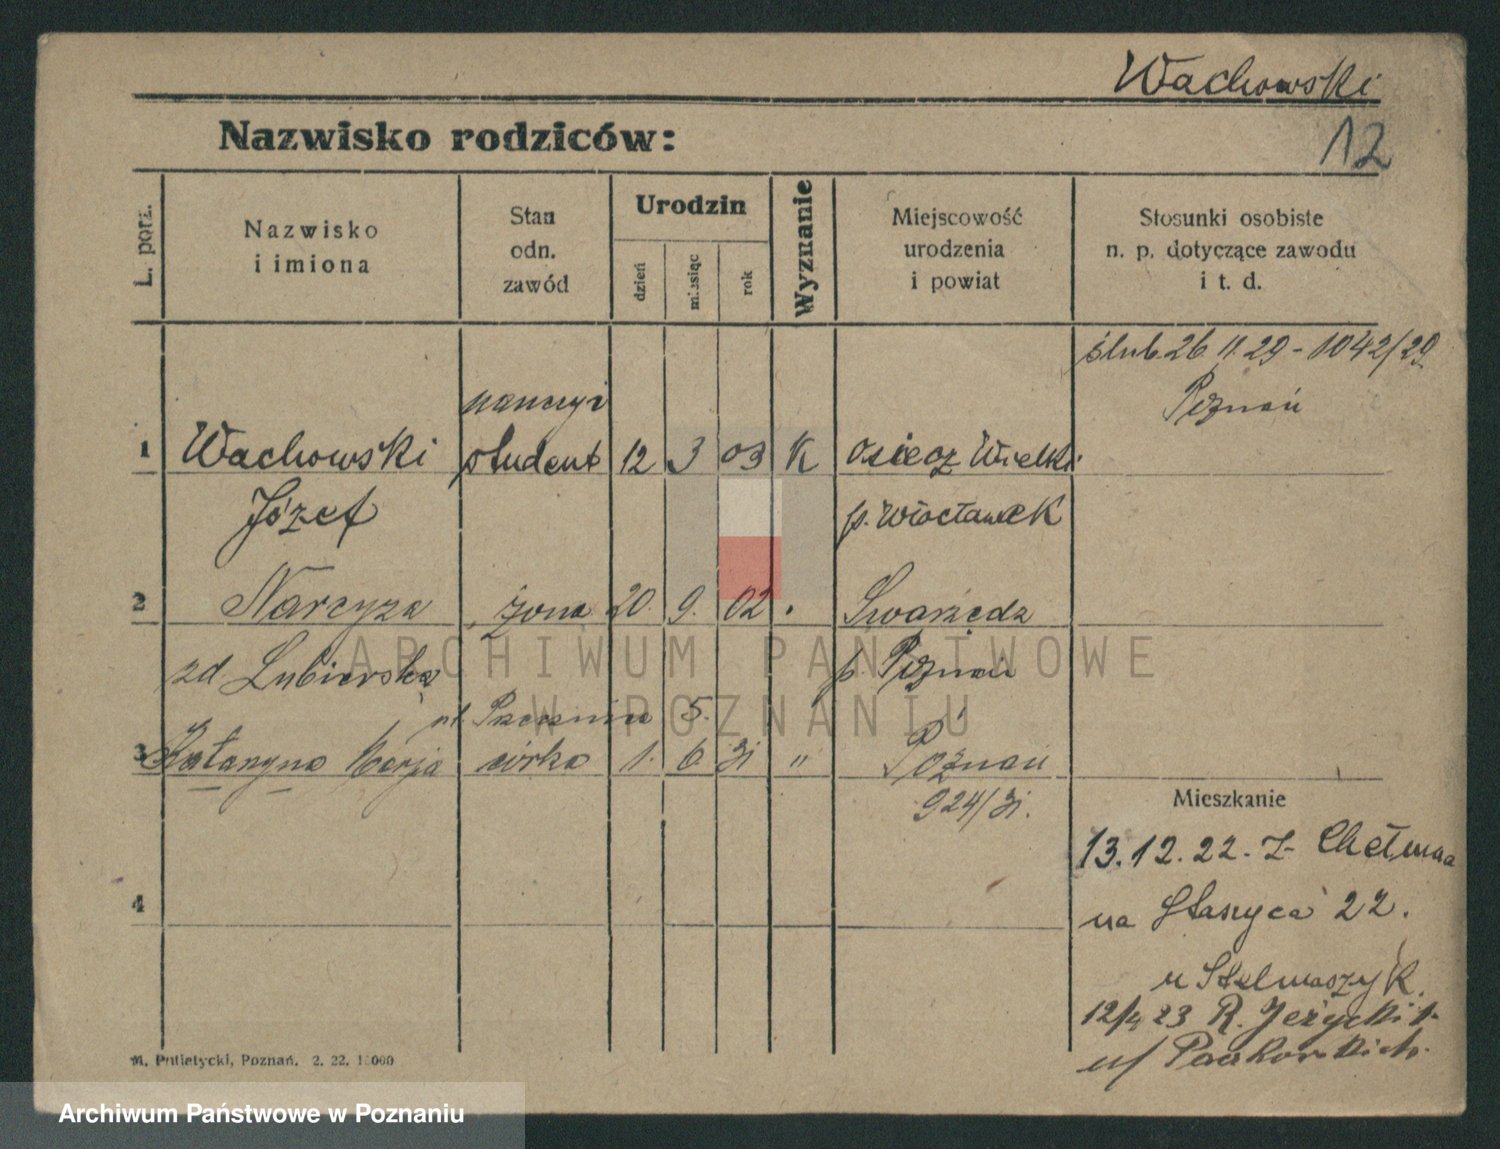 Wachowski
12
Nazwisko rodziców:
L. porz.
Nazwisko
i imiona
Stan
odn.
zawód
Urodzin
dzień
miesiąc
rok
Wyznanie
Miejscowość
urodzenia
i powiat
Stosunki osobiste
n. p. dotyczące zawodu
i t. d.
ślub 26 11. 29 - 1042/29
Poznań
nauczyc
1 Wachowski student 12 3 03 K Osiecz Wielki
Józef p. Włocławek
2 Narcyza żona 20. 9. 02 Swarzędz
zd Lubierska p. Poznań
5.
3 Katarzyna Marja córka 1. 6 31 " Poznań
924/31.
Mieszkanie
13.12.22. z Chełmna
4
na Staszyca 22.
u Stelmaszyk.
12/4 23 R. Jeżycki 1
u/
M. Putiatycki, Poznań. 2. 22. 1 000
ARCHIWUM PAŃSTWOWE
W POZNANIU
Archiwum Państwowe w Poznaniu